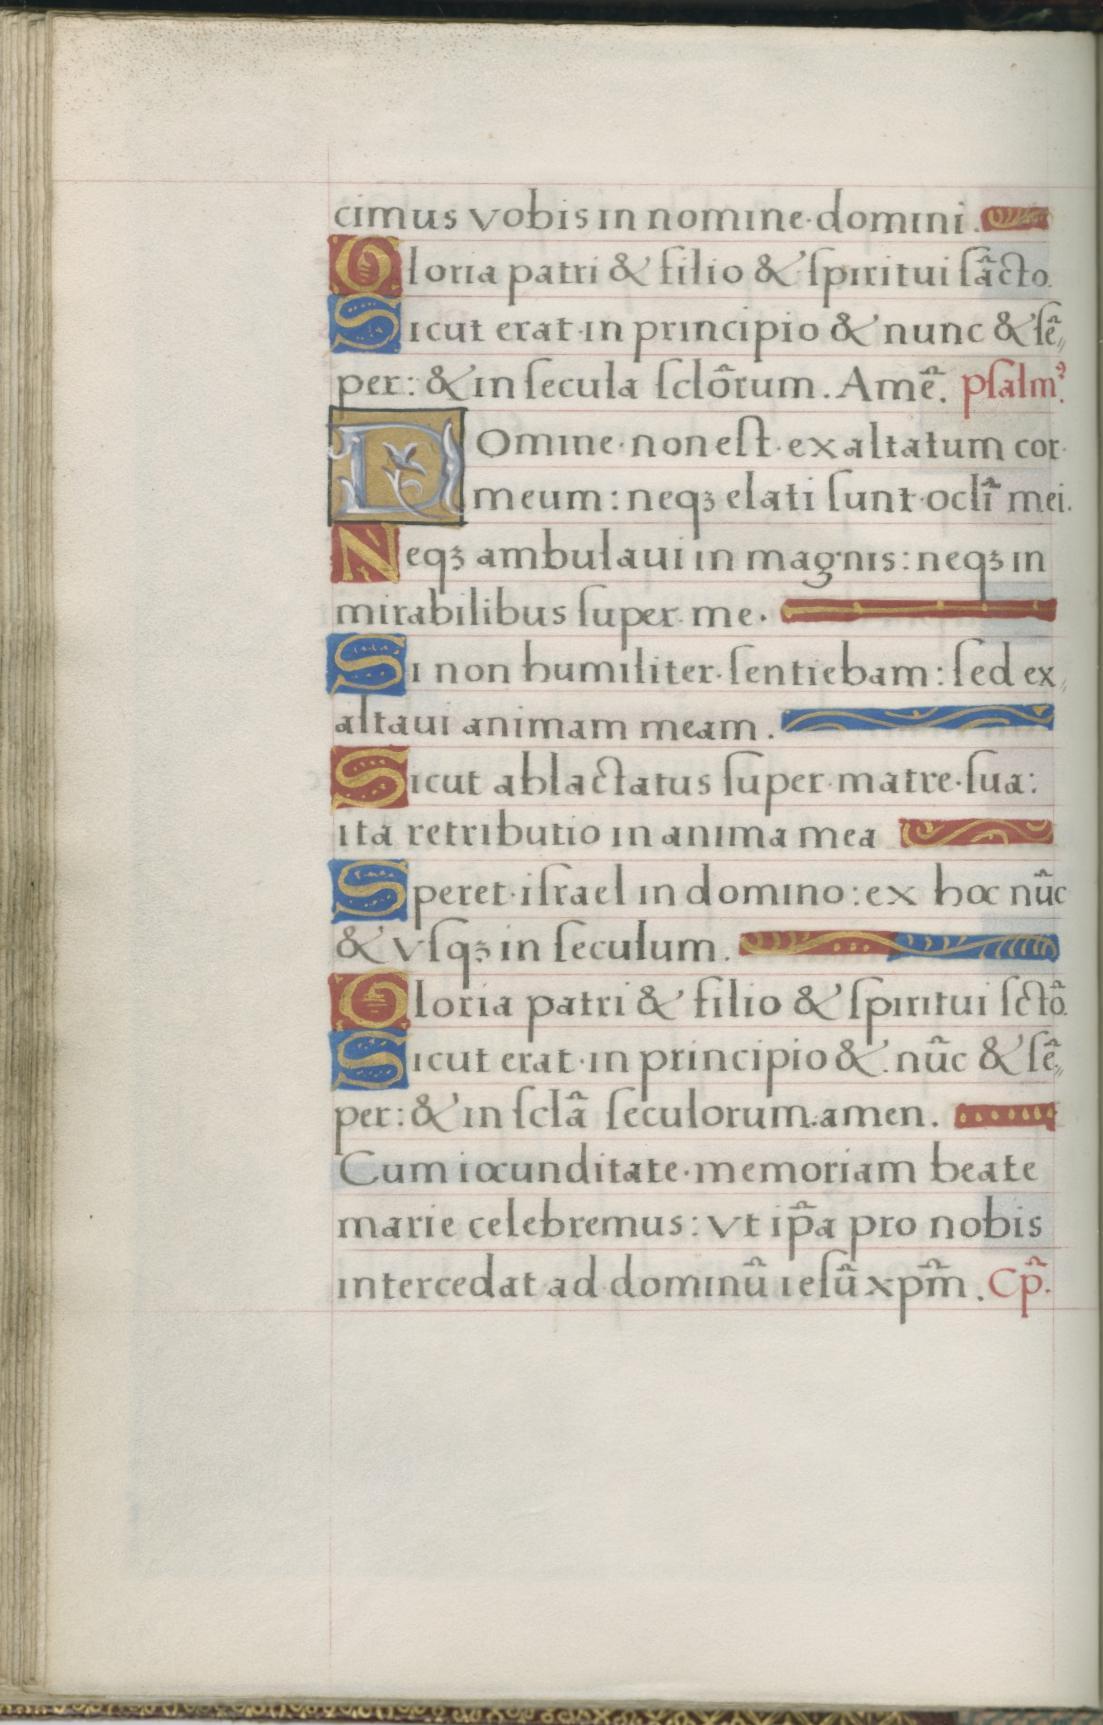 cimus vobis in nomine domini.
Gloria patri & filio & ſpiritui ſãcto.
Sicut erat in principio & nunc & ſẽ„
per: & in ſecula ſclõrum. Amẽ. pſalmꝰ.
Domine non eſt exaltatum cor
meum: neqꝫ elati ſunt oclĩ mei.
Neqꝫ ambulaui in magnis: neqꝫ in
mirabilibus ſuper me.
Si non humiliter ſentiebam: ſed ex„
altaui animam meam.
Sicut ablactatus ſuper matre ſua:
ita retributio in anima mea
Speret iſrael in domino: ex hoc nũc
& vſqꝫ in ſeculum.
Gloria patri & filio & ſpiritui ſctõ.
Sicut erat in principio & nũc & ſẽ„
per: & in ſclã ſeculorum.amen.
Cum iocunditate memoriam beate
marie celebremus: vt ip̃a pro nobis
intercedat ad dominũ ieſũ xpm̃. Cp̃.